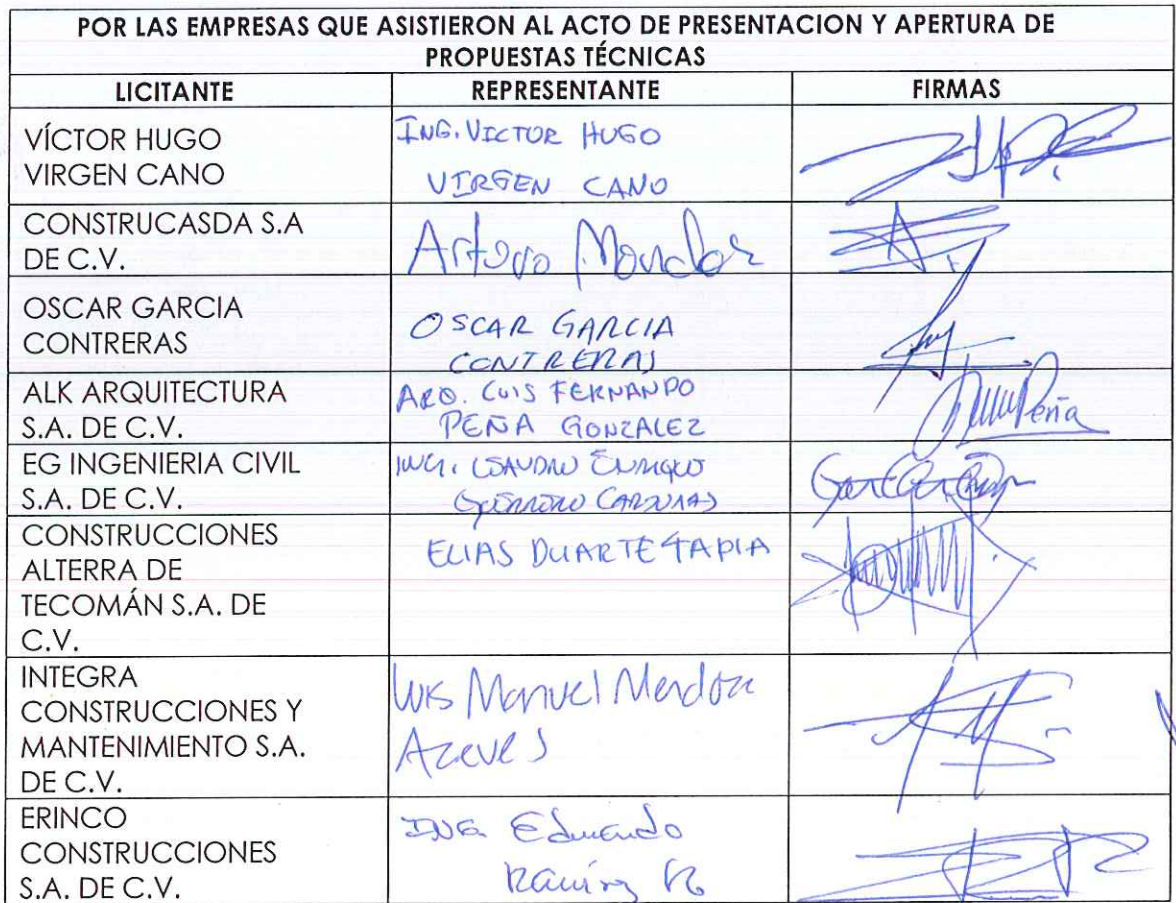 POR LAS EMPRESAS QUE ASISTIERON AL ACTO DE PRESENTACION Y APERTURA DE
PROPUESTAS TÉCNICAS
LICITANTE REPRESENTANTE FIRMAS
VÍCTOR HUGO
VIRGEN CANO
ING. VICTOR HUGO
VIRGEN CANO
CONSTRUCASDA S.A
DE C.V.
Arturo
OSCAR GARCIA
CONTRERAS
OSCAR GARCIA
CONTRERAS
ALK ARQUITECTURA
S.A. DE C.V.
ARQ. LUIS FERNANDO
PEÑA GONZALEZ
Peña
EG INGENIERIA CIVIL
S.A. DE C.V.
ING. ENRIQUE
CONSTRUCCIONES
ALTERRA DE
TECOMÁN S.A. DE
C.V.
ELIAS DUARTE TAPIA
INTEGRA
CONSTRUCCIONES Y
MANTENIMIENTO S.A.
DE C.V.
Luis Manuel Mendoza
Aceves
ERINCO
CONSTRUCCIONES
S.A. DE C.V.
ING. Eduardo